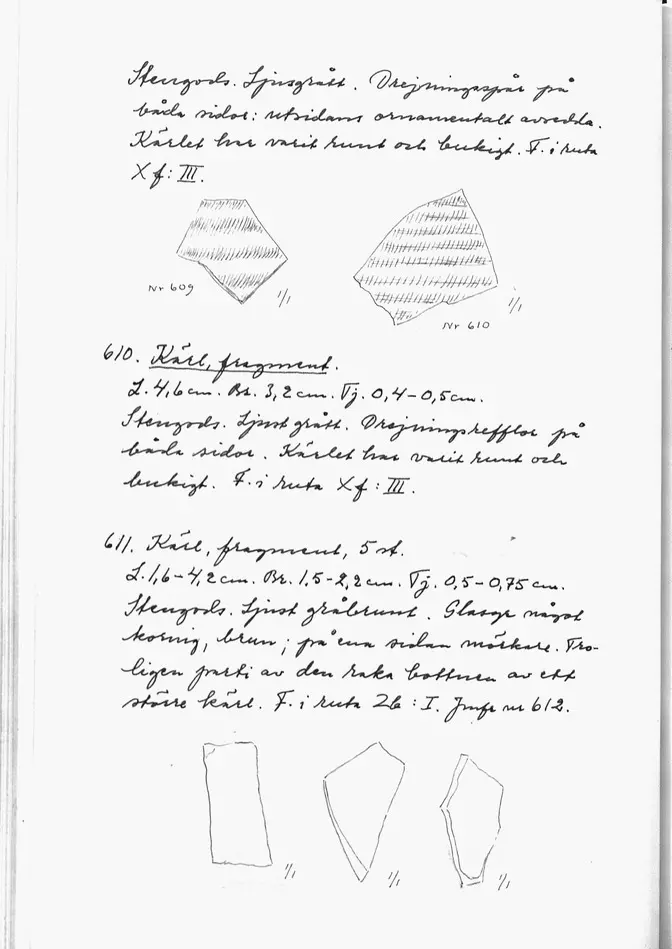 Stengods. Ljusgrått. Drejningsspår på
båda sidor: utsidans ornamentalt avsedda.
Kärlet har varit runt och bukigt. F. i ruta
Xf: III.
Nr 609
1/1
Nr 610
1/1
610. Kärl, fragment.
L. 4,6 cm. Br. 3,2 cm. Tj. 0,4-0,5 cm.
Stengods. Ljust grått. Drejningsrefflor på
båda sidor. Kärlet har varit runt och
bukigt. F. i ruta Xf: III.
611. Kärl, fragment, 5 st.
L. 1,6-4,2 cm. Br. 1,5-2,2 cm. Tj. 0,5-0,75 cm.
Stengods. Ljust gråbrunt. Glasyr något
kornig, brun; på ena sidan mörkare. Tro-
ligen parti av den raka bottnen av ett
större kärl. F. i ruta Zb: I. Jmfr nr 612.
1/1
1/1
1/1